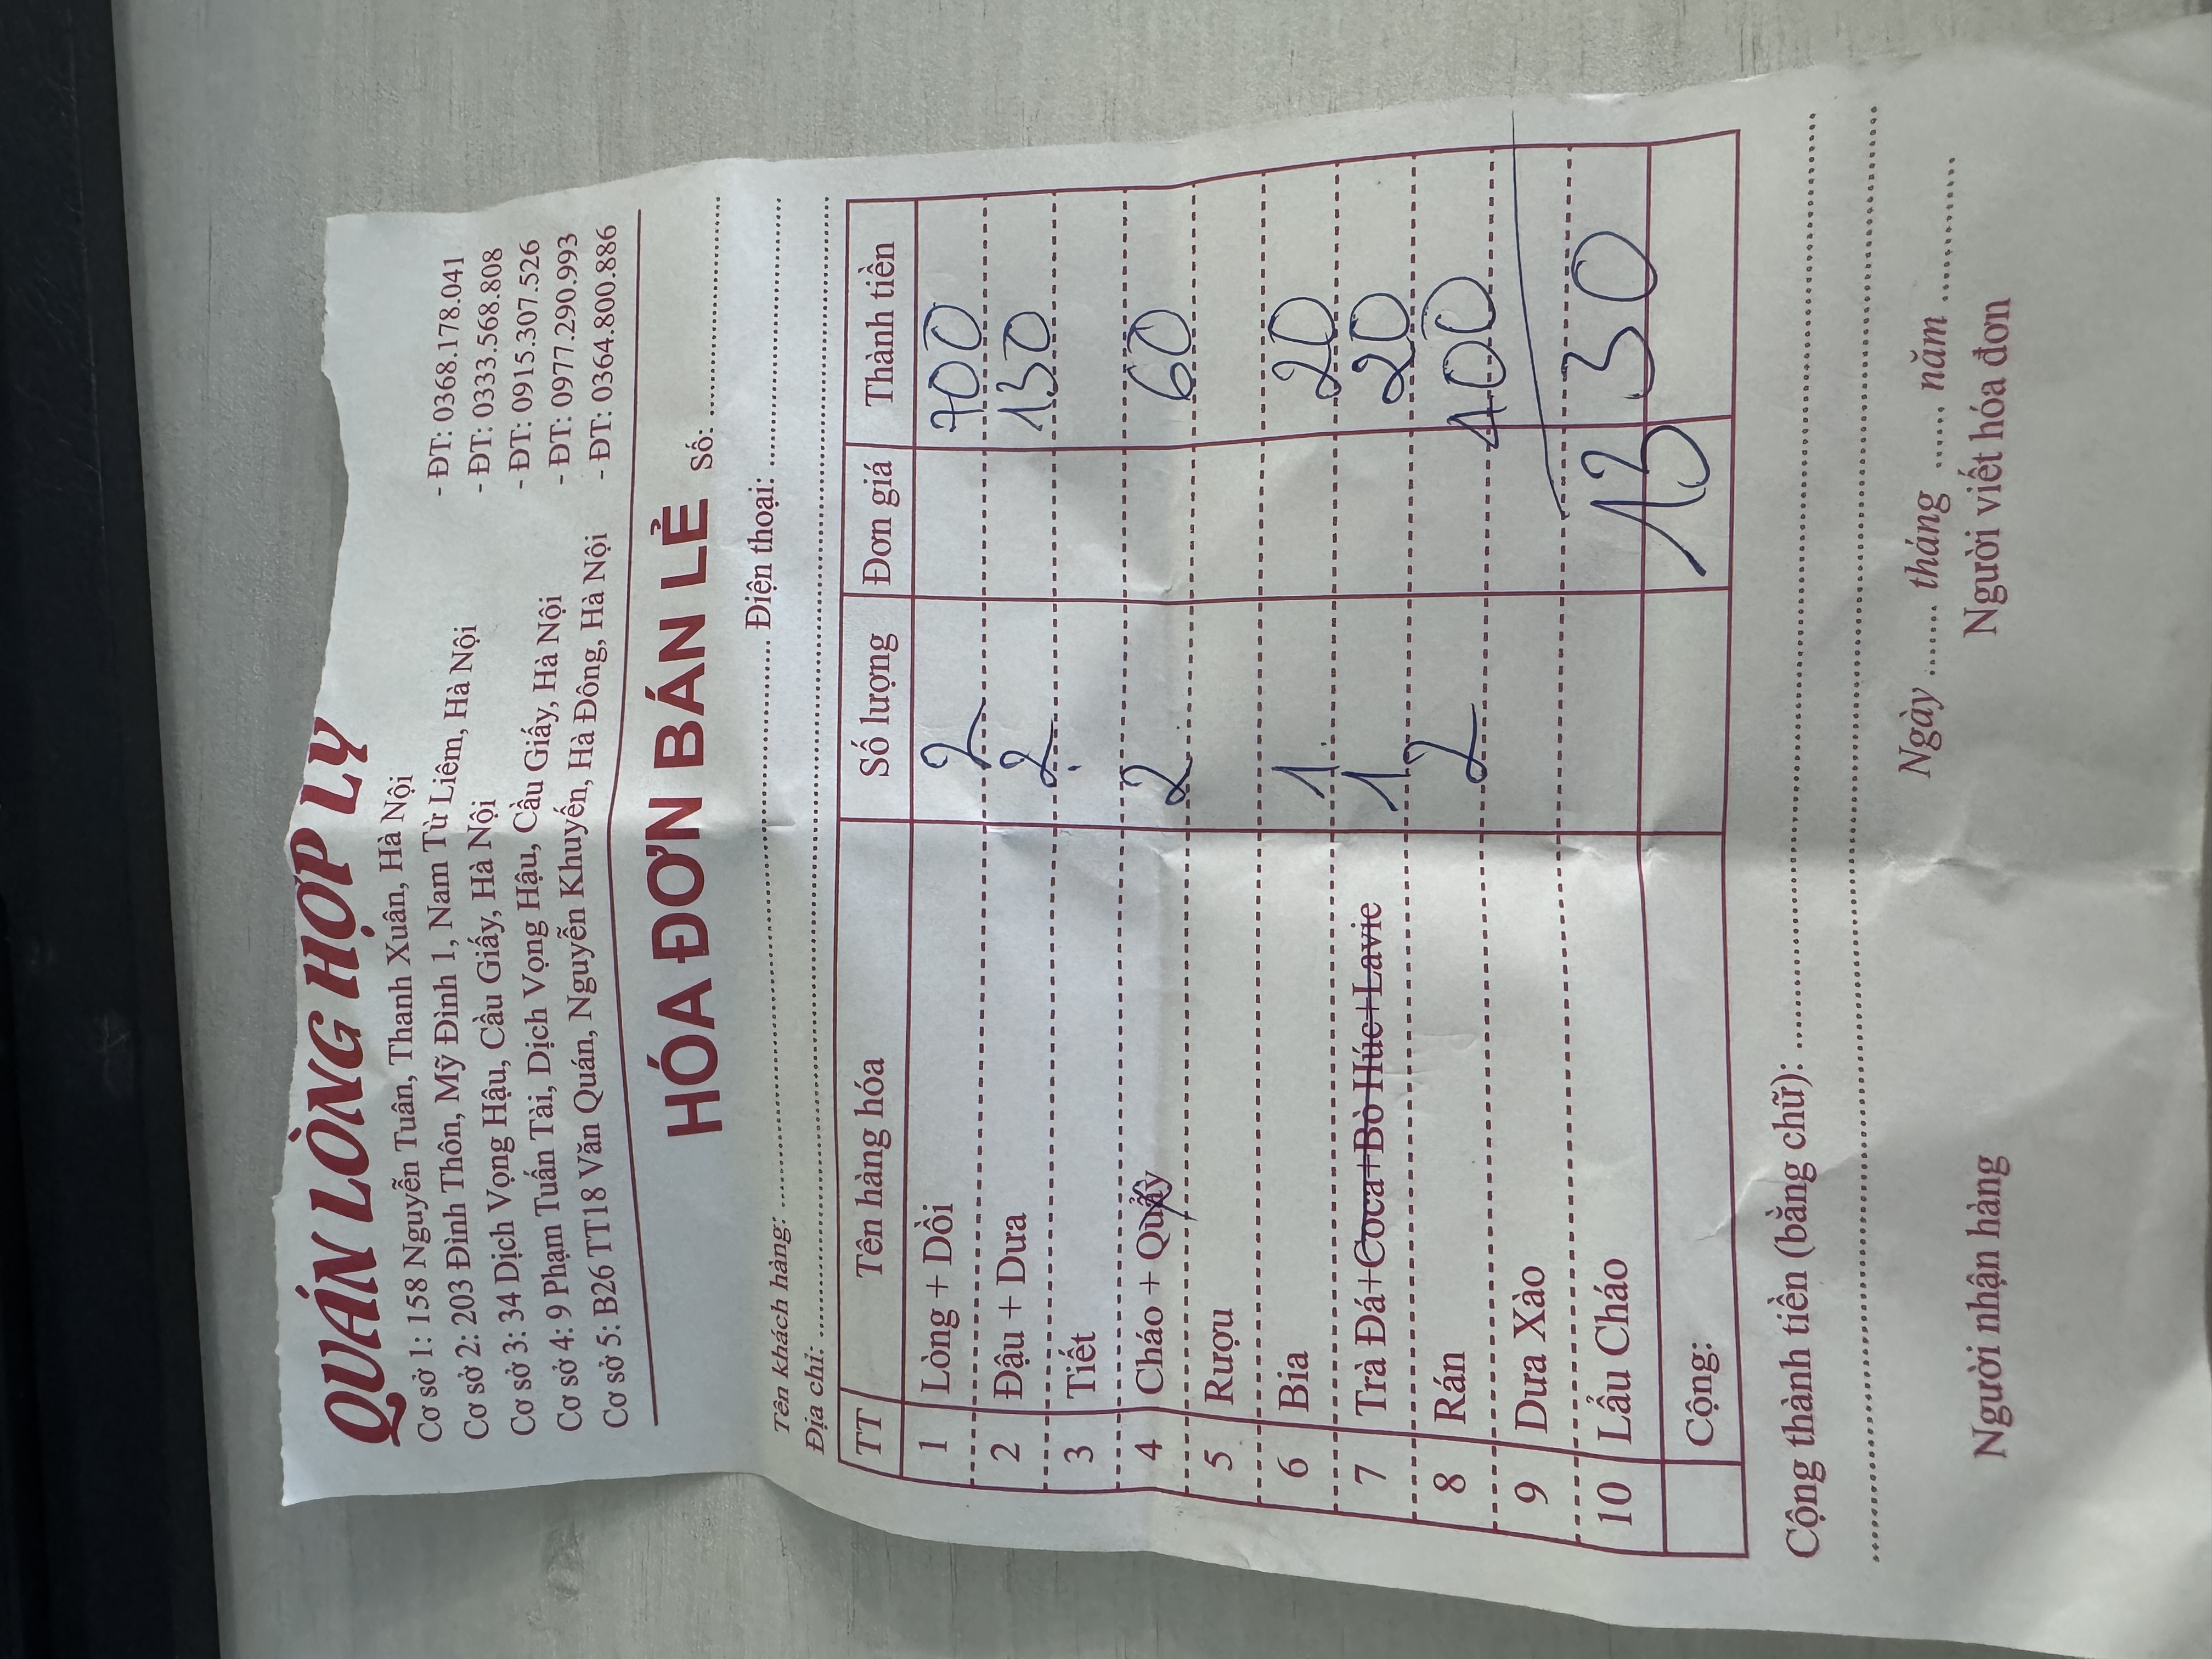 QUÁN LÒNG HỢP LÝ
Cơ sở 1: 158 Nguyễn Tuân, Thanh Xuân, Hà Nội - ĐT: 0368.178.041
Cơ sở 2: 203 Đình Thôn, Mỹ Đình 1, Nam Từ Liêm, Hà Nội - ĐT: 0333.568.808
Cơ sở 3: 34 Dịch Vọng Hậu, Cầu Giấy, Hà Nội - ĐT: 0915.307.526
Cơ sở 4: 9 Phạm Tuấn Tài, Dịch Vọng Hậu, Cầu Giấy, Hà Nội - ĐT: 0977.290.993
Cơ sở 5: B26 TT18 Văn Quán, Nguyễn Khuyến, Hà Đông, Hà Nội - ĐT: 0364.800.886
HÓA ĐƠN BÁN LẺ Số:
Tên khách hàng: Điện thoại:
Địa chỉ:
TT Tên hàng hóa Số lượng Đơn giá Thành tiền
1 Lòng + Dồi 2 700
2 Đậu + Dưa 2 130
3 Tiết
4 Cháo + Quẩy 2 60
5 Rượu
6 Bia 1 20
7 Trà Đá+Coca+Bò Húc+Lavie 1 20
8 Rán 2 400
9 Dưa Xào
10 Lẩu Cháo 1330
Cộng:
Cộng thành tiền (bằng chữ):
Ngày ....... tháng ...... năm .............
Người nhận hàng Người viết hóa đơn